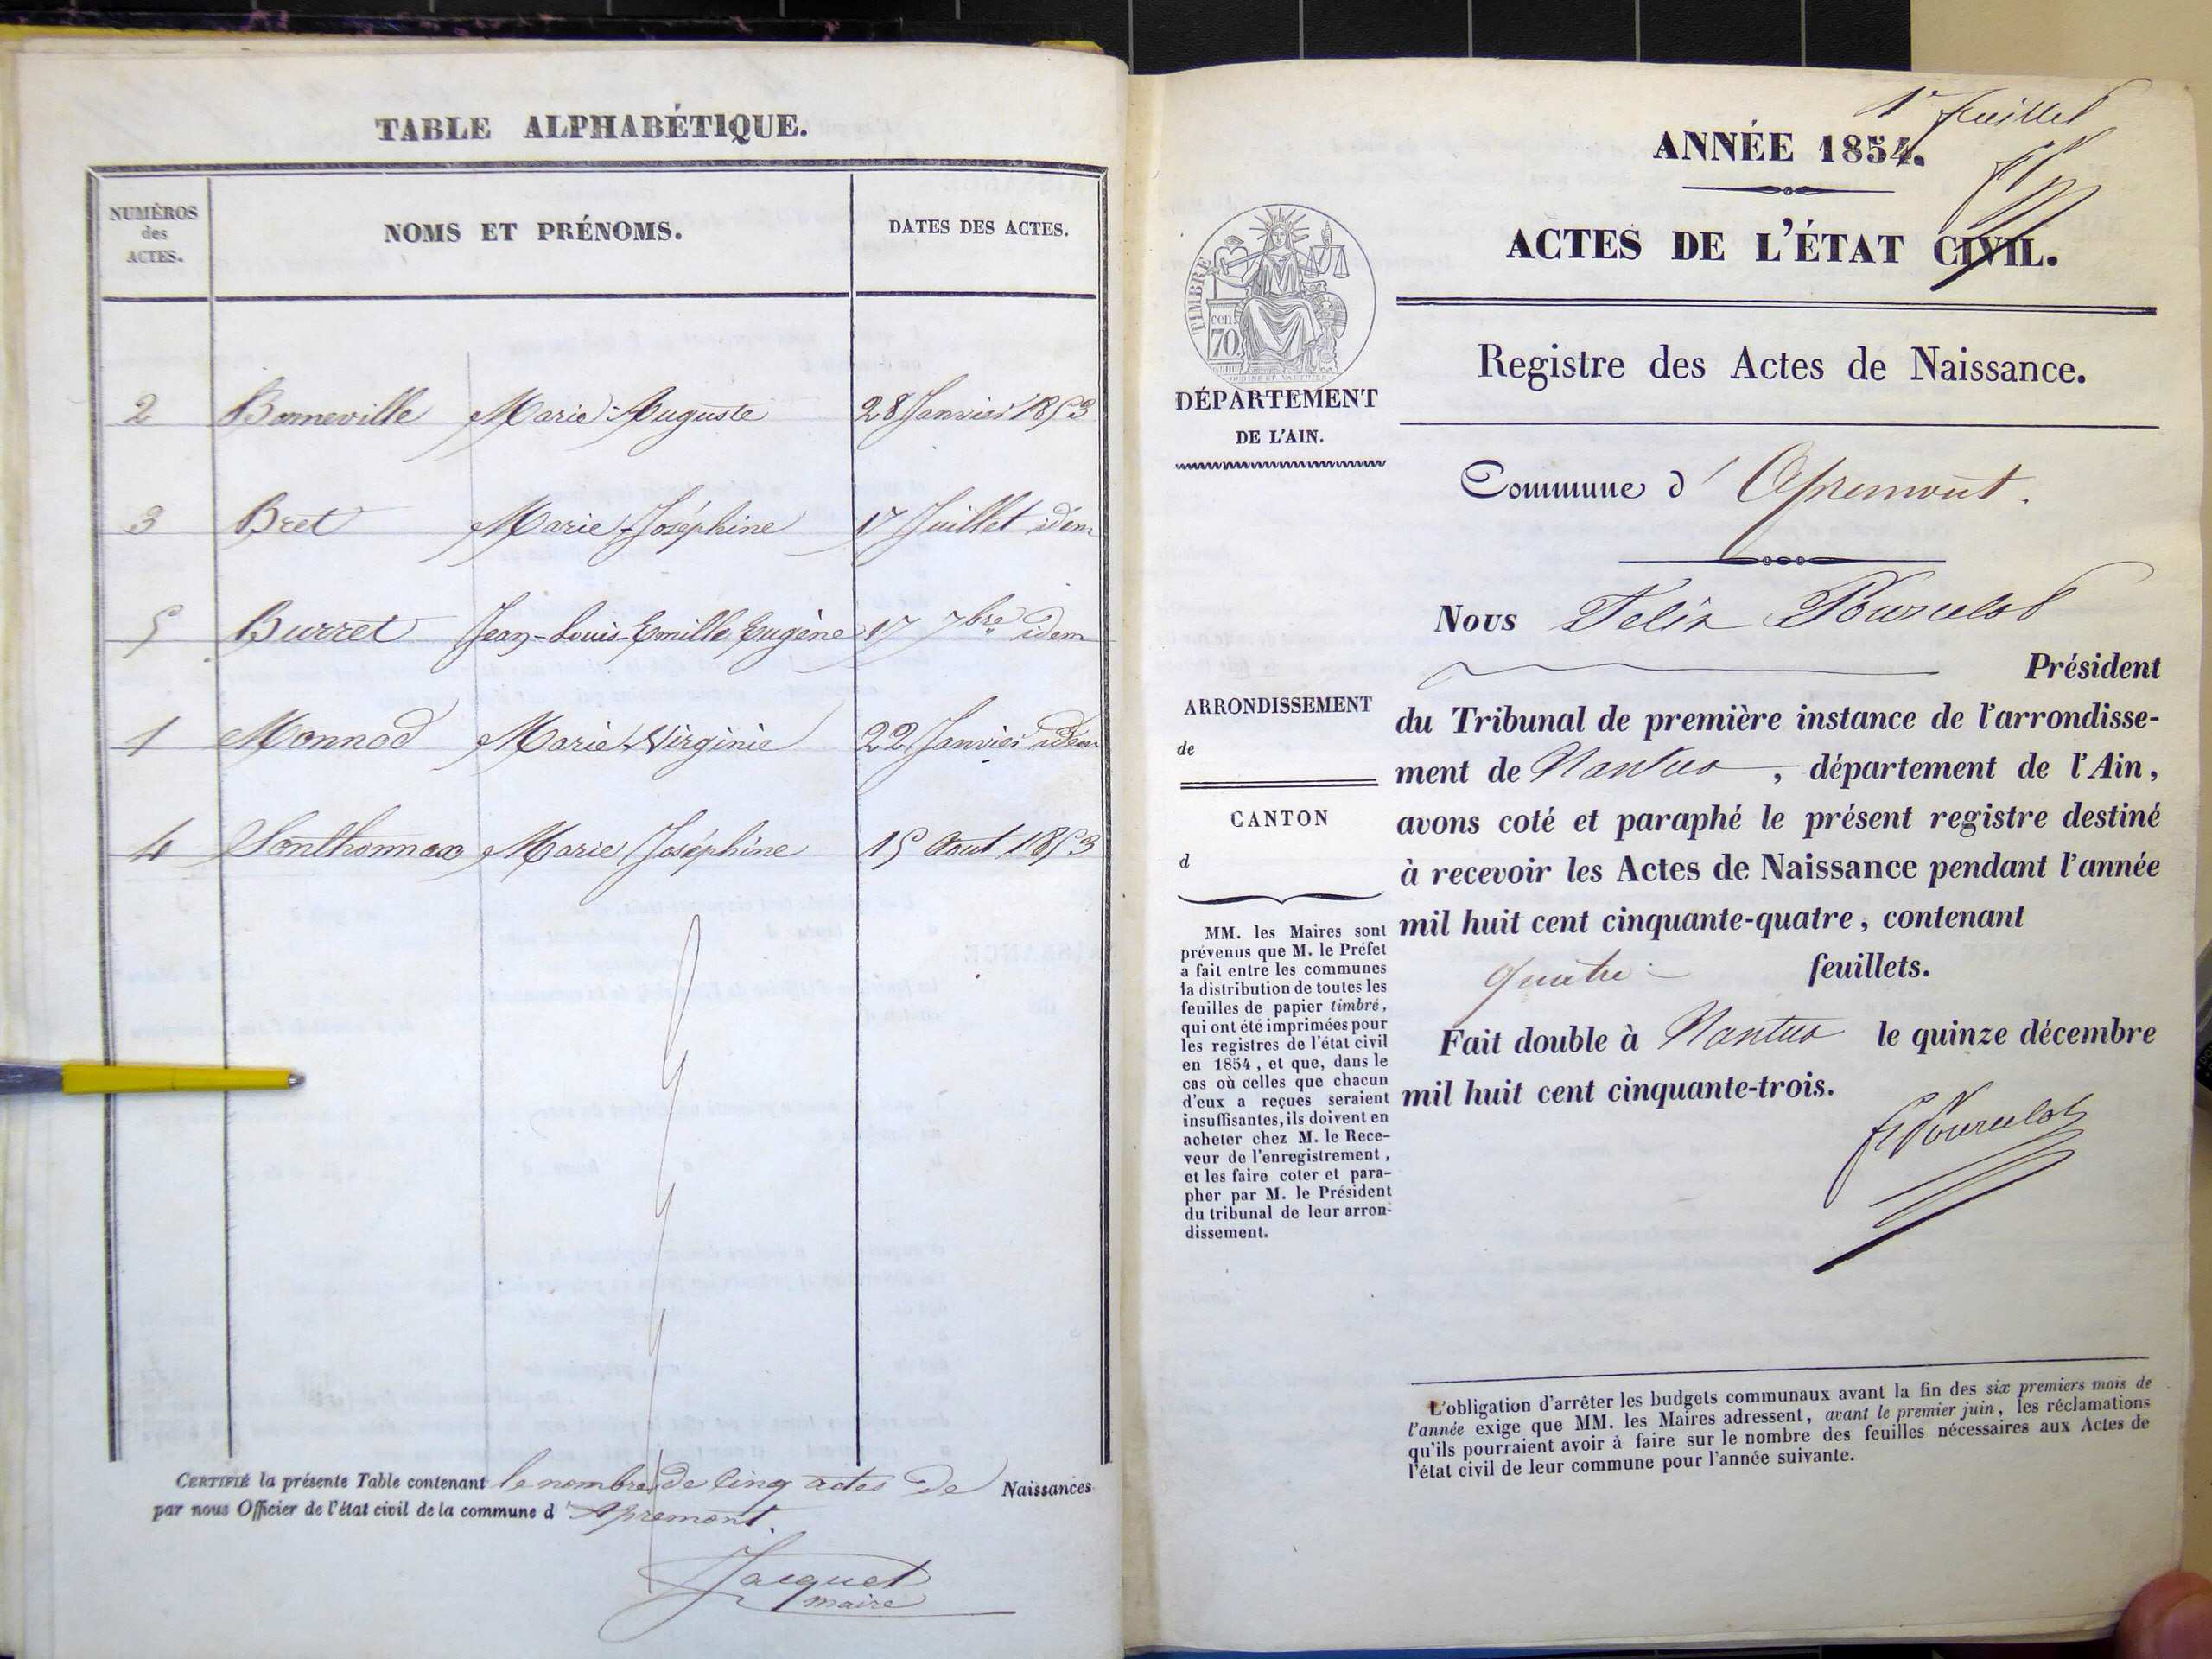 TABLE ALPHABÉTIQUE.
NUMÉROS des ACTES.
NOMS ET PRÉNOMS.
DATES DES ACTES.
2 Bonneville Marie-Auguste 28 Janvier 1853
3 Bret Marie-Joséphine 17 Juillet idem
5 Burret Jean-Louis-Emille Eugène 17 7bre idem
1 Monnod Marie Virginie 22 Janvier idem
4 Sonthonnax Marie Joséphine 15 Aout 1853
CERTIFIÉ la présente Table contenant le nombre de Cinq actes de Naissances
par nous Officier de l'état civil de la commune d'Apremont.
Jacquet
maire
1er feuillet
ANNÉE 1854.
ACTES DE L'ÉTAT CIVIL.
TIMBRE
70 cen.
DÉPARTEMENT
DE L'AIN.
Registre des Actes de Naissance.
Commune d'Apremont.
Nous Félix Pourcelot
Président
du Tribunal de première instance de l'arrondisse-
ment de Nantua, département de l'Ain,
avons coté et paraphé le présent registre destiné
à recevoir les Actes de Naissance pendant l'année
mil huit cent cinquante-quatre, contenant
quatre feuillets.
Fait double à Nantua le quinze décembre
mil huit cent cinquante-trois.
F Pourcelot
ARRONDISSEMENT
de
CANTON
d
MM. les Maires sont
prévenus que M. le Préfet
a fait entre les communes
la distribution de toutes les
feuilles de papier timbré,
qui ont été imprimées pour
les registres de l'état civil
en 1854, et que, dans le
cas où celles que chacun
d'eux a reçues seraient
insuffisantes, ils doivent en
acheter chez M. le Rece-
veur de l'enregistrement,
et les faire coter et para-
pher par M. le Président
du tribunal de leur arron-
dissement.
L'obligation d'arrêter les budgets communaux avant la fin des six premiers mois de
l'année exige que MM. les Maires adressent, avant le premier juin, les réclamations
qu'ils pourraient avoir à faire sur le nombre des feuilles nécessaires aux Actes de
l'état civil de leur commune pour l'année suivante.